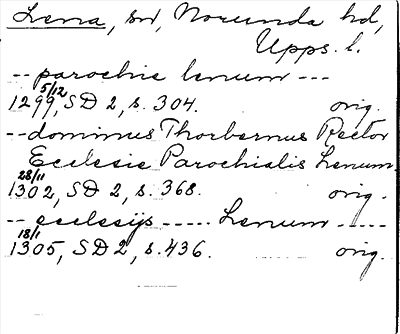 Lena, sn, Norunda hd,
Upps. l.
-- parochie lenum ---
5/12
1299, SD 2, s. 304. orig.
-- dominus Thorbernus Rector
Ecclesie Parochialis Lenum.
28/11
1302, SD 2, s. 368. orig.
-- ecclesijs ----- Lenum -----
18/1
1305, SD 2, s. 436. orig.